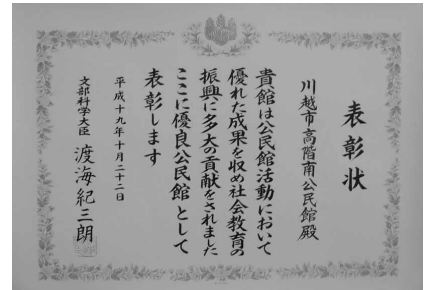 表彰状
川越市高階南公民館殿
貴館は公民館活動において
優れた成果を収め社会教育の
振興に多大の貢献をされました
ここに優良公民館として
表彰します
平成十九年十月二十二日
文部科学大臣 渡海紀三朗